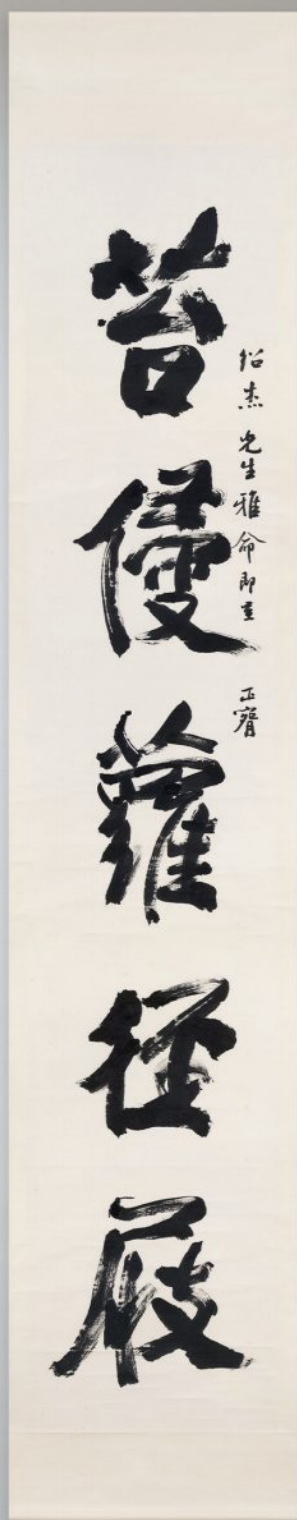 苔侵蘿徑屐
紹杰先生雅命即
正